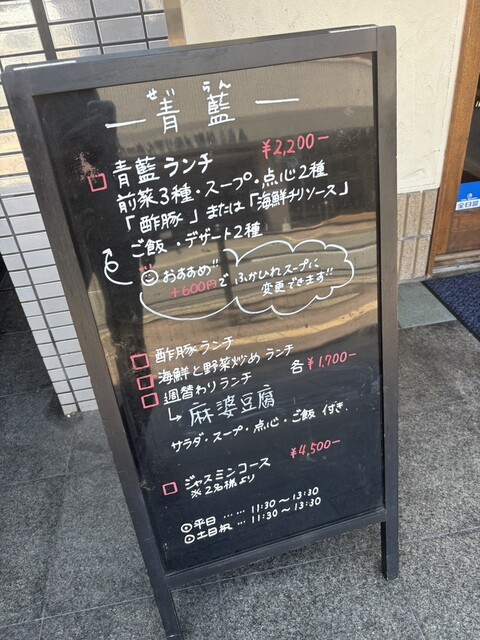 せい らん
— 青 藍 —
□ 青藍ランチ ¥2,200-
前菜3種・スープ・点心2種
「酢豚」または「海鮮チリソース」
ご飯・デザート2種
おすすめ!!
+600円で ふかひれスープに
変更できます!!
□ 酢豚ランチ
□ 海鮮と野菜炒め ランチ 各¥1,700-
□ 週替わりランチ
↳ 麻婆豆腐
サラダ・スープ・点心・ご飯 付き.
□ ジャスミンコース ¥4,500-
※2名様より
⊙平日 ‥‥ ‥ 11:30〜13:30
⊙土日祝 ‥ ‥ 11:30〜13:30
全日錠